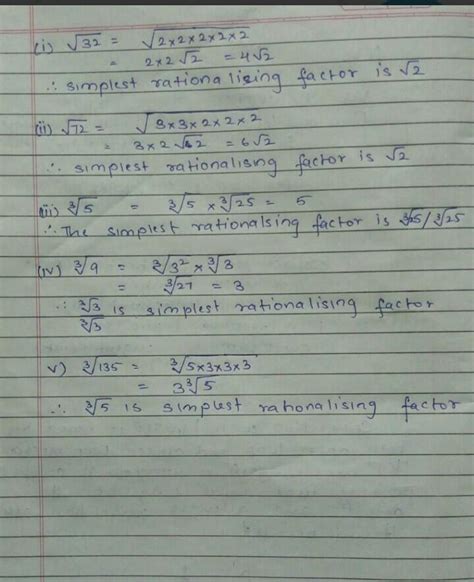 (i) √32 = √2×2×2×2×2
= 2×2√2 = 4√2
∴ simplest rationalising factor is √2
(ii) √72 = √3×3×2×2×2
= 3×2√2 = 6√2
∴ simplest rationalising factor is √2
(iii) ∛5 = ∛5 × ∛25 = 5
∴ The simplest rationalsing factor is ∛25/∛25
(iv) ∛9 = ∛3² × ∛3
= ∛27 = 3
∴ ∛3 is simplest rationalising factor
∛3
v) ∛135 = ∛5×3×3×3
= 3∛5
∴ ∛5 is simplest rationalising factor